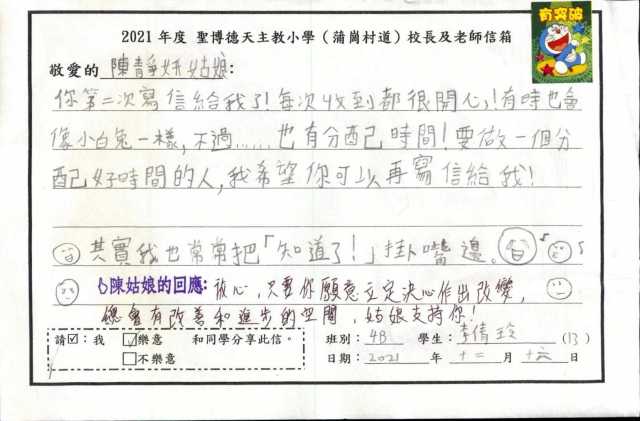 2021 年度 聖博德天主教小學（蒲崗村道）校長及老師信箱
有突破
敬愛的 陳靜妍姑娘：
你第二次寫信給我了！每次收到都很開心！有時也會
像小白兔一樣，不過……也有分配己時間！要做一個分
配己好時間的人，我希望你可以再寫信給我！
其實我也常常把「知道了！」掛嘴邊。
陳姑娘的回應：放心，只要你願意立定決心作出改變，
總會有改善和進步的空間，姑娘支持你！
請☑：我 ☑樂意 和同學分享此信。
□不樂意
班別：4B 學生：李倩玲 (13)
日期：2021 年 十二 月 十六 日